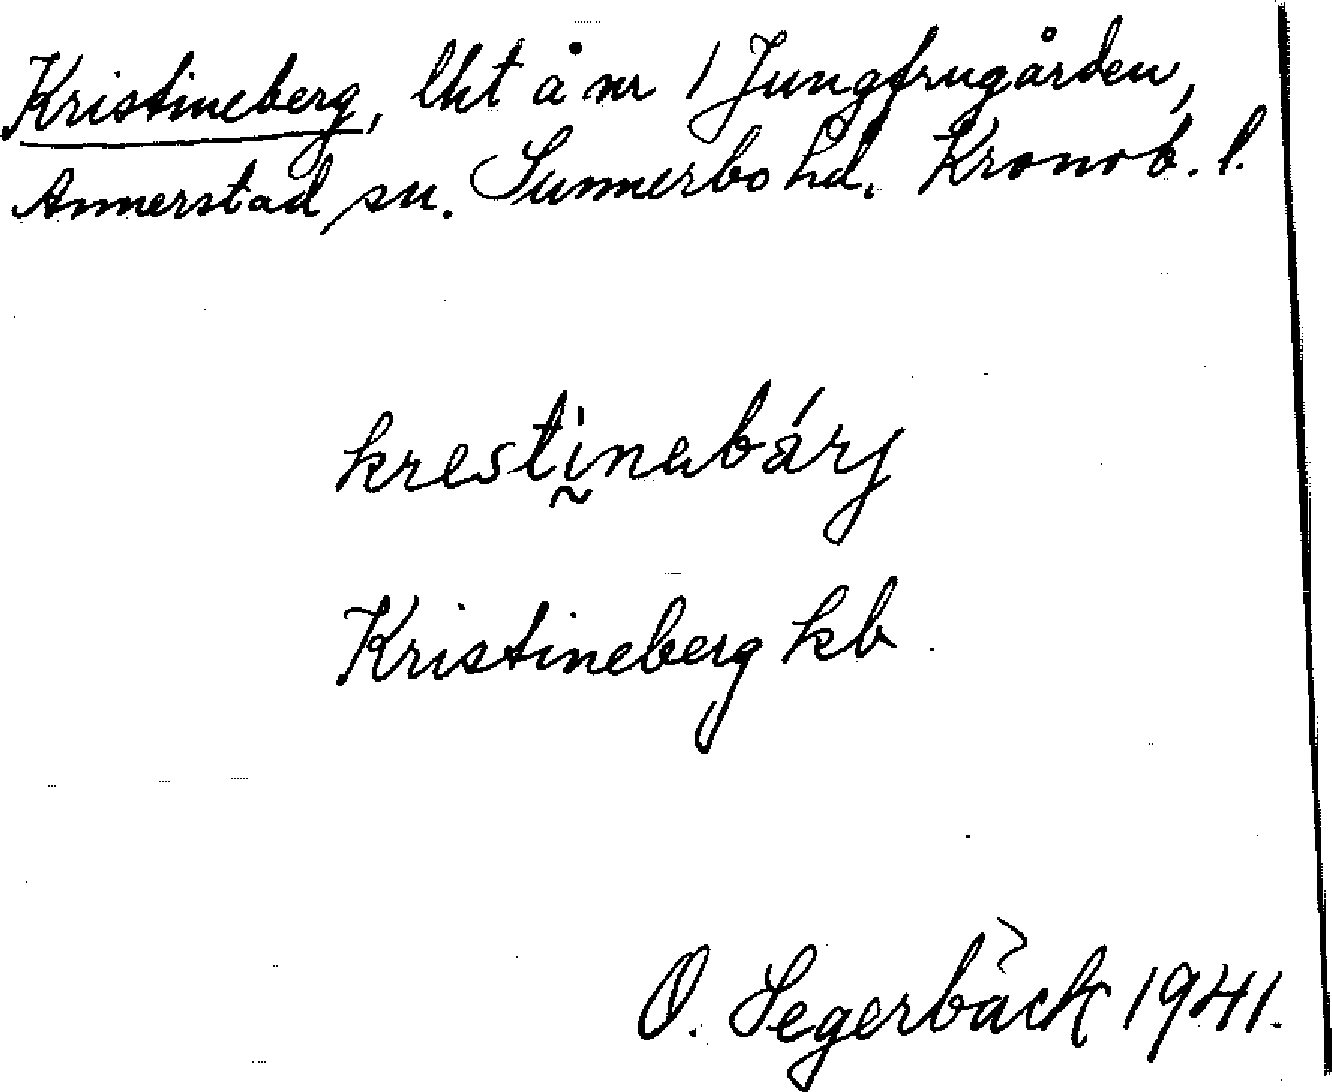 Kristineberg, lht å nr 1 Jungfrugården,
Annerstad sn. Sunnerbo hd. Kronob. l.
krestịnabárj
Kristineberg kb
O. Segerbäck 1941.